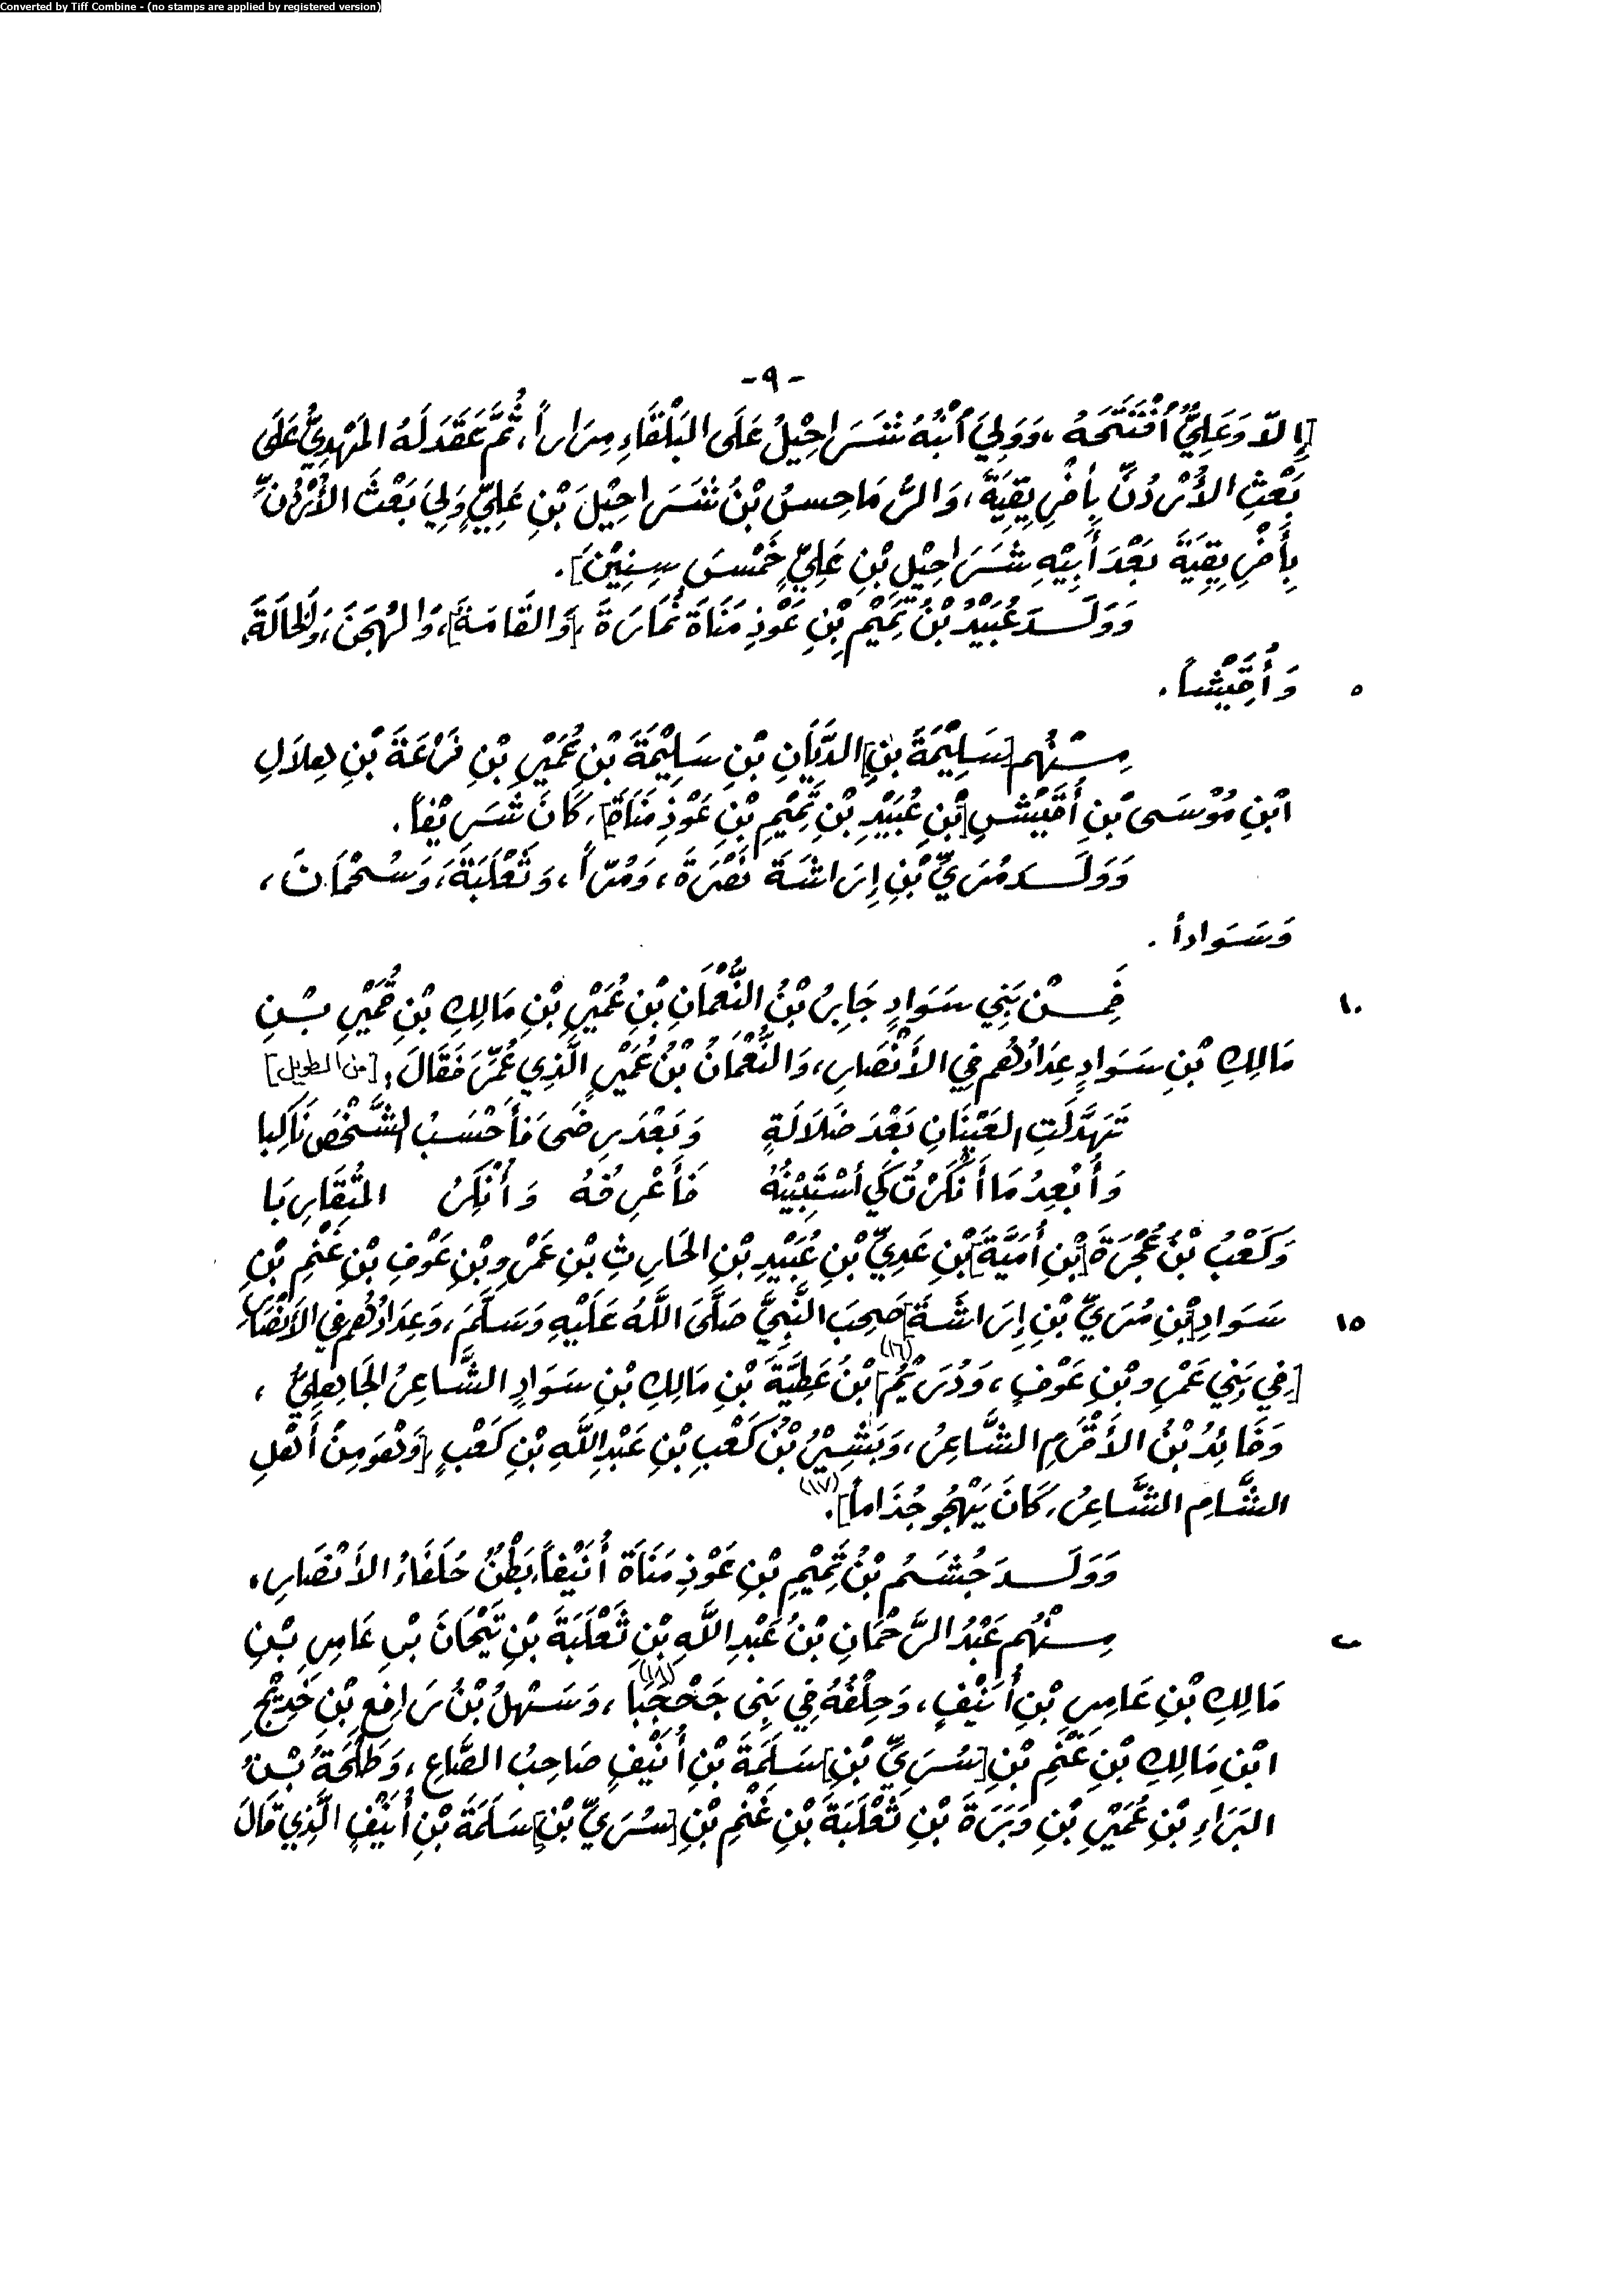 Converted by Tiff Combine - (no stamps are applied by registered version)
-٩-
[إِلاّ وَعَلِيٌّ اُفْتَتَحَهُ، وَوَلِيَ اُبْنُهُ شَرَاحِيْلُ عَلَى البَلْقَاءِ مِرَاراً، ثُمَّ عَقَدَ لَهُ المَهْدِيُّ عَلَى
بَعْثِ الأُرْدُنِّ بِأَفْرِيقِيَةَ، وَالرُّمَاحِسُ بْنُ شَرَاحِيْلَ بْنِ عَلِيٍّ وَلِيَ بَعْثَ الأُرْدُنِّ
بِأَفْرِيقِيَةَ بَعْدَ أَبِيْهِ شَرَاحِيْلِ بْنِ عَلِيٍّ خَمْسَ سِنِيْنَ].
وَوَلَدَ عُبَيْدُ بْنُ تَمِيْمِ بْنِ عَوْذِ مَنَاةَ نُمَارَةَ، [وَالقَامَةَ]، وَالهُجَنَ، وَالحَالَةَ،
٥ وَأُقَيْشاً.
مِنْهُم [سَلِيْمَةَ بْنِ] الدَّيَّانِ بْنِ سَلِيْمَةَ بْنِ عُمَيْرِ بْنِ قَرْعَةَ بْنِ هِلاَلِ
ابْنِ مُوْسَى بْنِ أُقَيْشِ [بْنِ عُبَيْدِ بْنِ تَمِيْمِ بْنِ عَوْذِ مَنَاةَ]، كَانَ شَرِيْفاً.
وَوَلَدَ مُرَيُّ بْنِ إِرَاشَةَ نَصْرَةَ، وَمُرّاً، وَثَعْلَبَةَ، وَسُحْمَانَ،
وَسَوَاداً.
١٠ فَمِنْ بَنِي سَوَادٍ جَابِرُ بْنُ النُّعْمَانِ بْنِ عُمَيْرِ بْنِ مَالِكِ بْنِ قُمَيْرِ بْنِ
مَالِكِ بْنِ سَوَادٍ عِدَادُهُم فِي الأَنْصَارِ، وَالنُّعْمَانُ بْنُ عُمَيْرٍ الَّذِي عُمِّرَ فَقَالَ: [من الطويل]
تَهَدَّلَتِ العَيْنَانِ بَعْدَ ضَلاَلَةٍ وَبَعْدَ رِضَىً فَأَحْسَبُ الشَّخْصَ رَاكِبا
وَأُبْعِدُ مَا أَنْكَرْتُ كَي أَسْتَبِيْنَهُ فَأَعْرِفُهُ وَأُنْكِرُ المُتَقَارِبَا
وَكَعْبُ بْنُ عُجْرَةَ [بْنِ أُمَيَّةَ] بْنِ عَدِيِّ بْنِ عُبَيْدِ بْنِ الحَارِثِ بْنِ عَمْرِو بْنِ عَوْفِ بْنِ غَنْمِ بْنِ
١٥ سَوَادِ [بْنِ مُرَيِّ بْنِ إِرَاشَةَ] صَحِبَ النَّبِيَّ صَلَّى اللَّهُ عَلَيْهِ وَسَلَّمَ، وَعِدَادُهُم فِي الأَنْصَارِ
[فِي بَنِي عَمْرِو بْنِ عَوْفٍ، وَدُرَيْمُ] (١٦) بْنُ عَطِيَّةَ بْنِ مَالِكِ بْنِ سَوَادٍ الشَّاعِرُ الجَاهِلِيُّ،
وَفَائِدُ بْنُ الأَقْرَمِ الشَّاعِرُ، وَبَشِيْرُ بْنُ كَعْبِ بْنِ عَبْدِ اللَّهِ بْنِ كَعْبٍ، [وَهُوَ مِنْ أَهْلِ
الشَّامِ الشَّاعِرُ، كَانَ يَهْجُو جُذَاماً]. (١٧)
وَوَلَدَ جُشَمُ بْنُ تَمِيْمِ بْنِ عَوْذِ مَنَاةَ أُنَيْفاً، بَطْنٌ حُلَفَاءُ الأَنْصَارِ.
٢٠ مِنْهُم عَبْدُ الرَّحْمَانِ بْنُ عَبْدِ اللَّهِ بْنِ ثَعْلَبَةَ بْنِ تَيْحَانَ بْنِ عَامِرِ بْنِ
مَالِكِ بْنِ عَامِرِ بْنِ أُنَيْفٍ، وَحِلْفُهُ فِي بَنِي جَحْجَبَا (١٨)، وَسَهْلُ بْنُ رَافِعِ بْنِ خَدِيْجِ
ابْنِ مَالِكِ بْنِ غَنْمِ بْنِ [سُرَيِّ بْنِ] سَلَمَةَ بْنِ أُنَيْفٍ صَاحِبُ الصَّاعِ، وَطَلْحَةُ بْنُ
البَرَاءِ بْنِ عُمَيْرِ بْنِ وَبَرَةَ بْنِ ثَعْلَبَةَ بْنِ غَنْمِ بْنِ [سُرَيِّ بْنِ] سَلَمَةَ بْنِ أُنَيْفٍ الَّذِي قَالَ